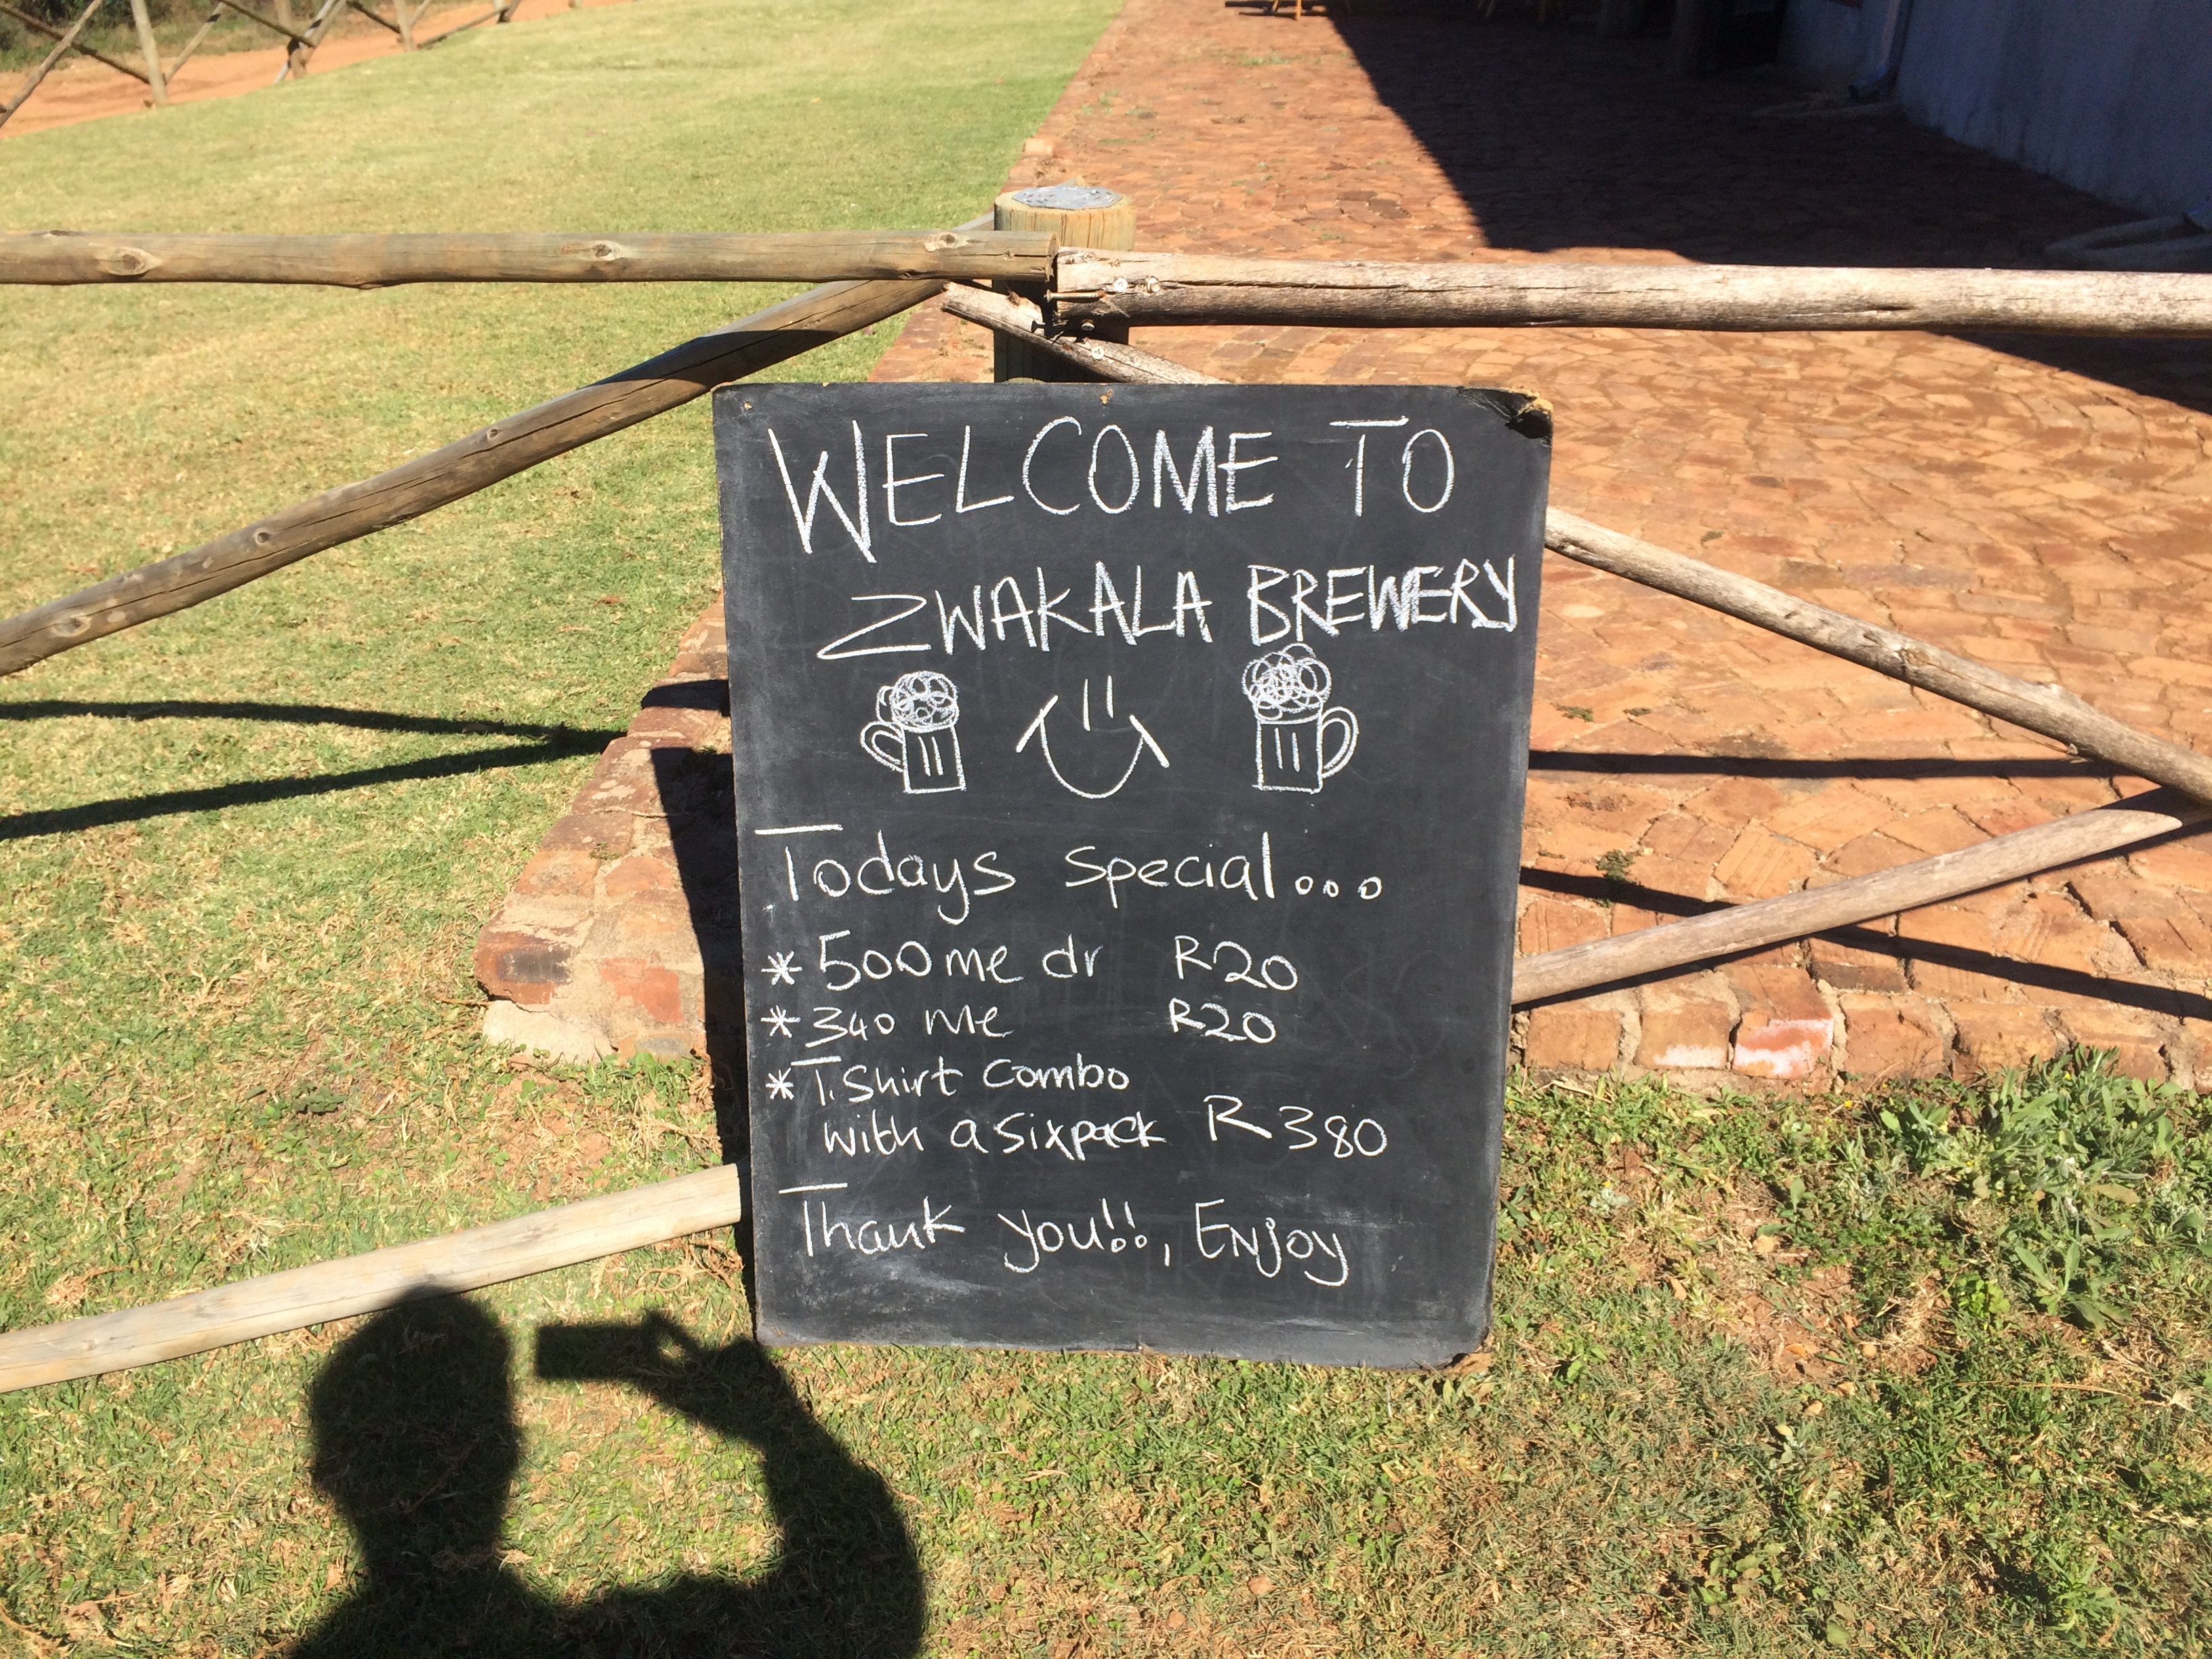 WELCOME TO
ZWAKALA BREWERY
Todays special...
* 500 ml dr R20
* 340 ml R20
* T.Shirt combo
with a sixpack R380
Thank you!!, Enjoy